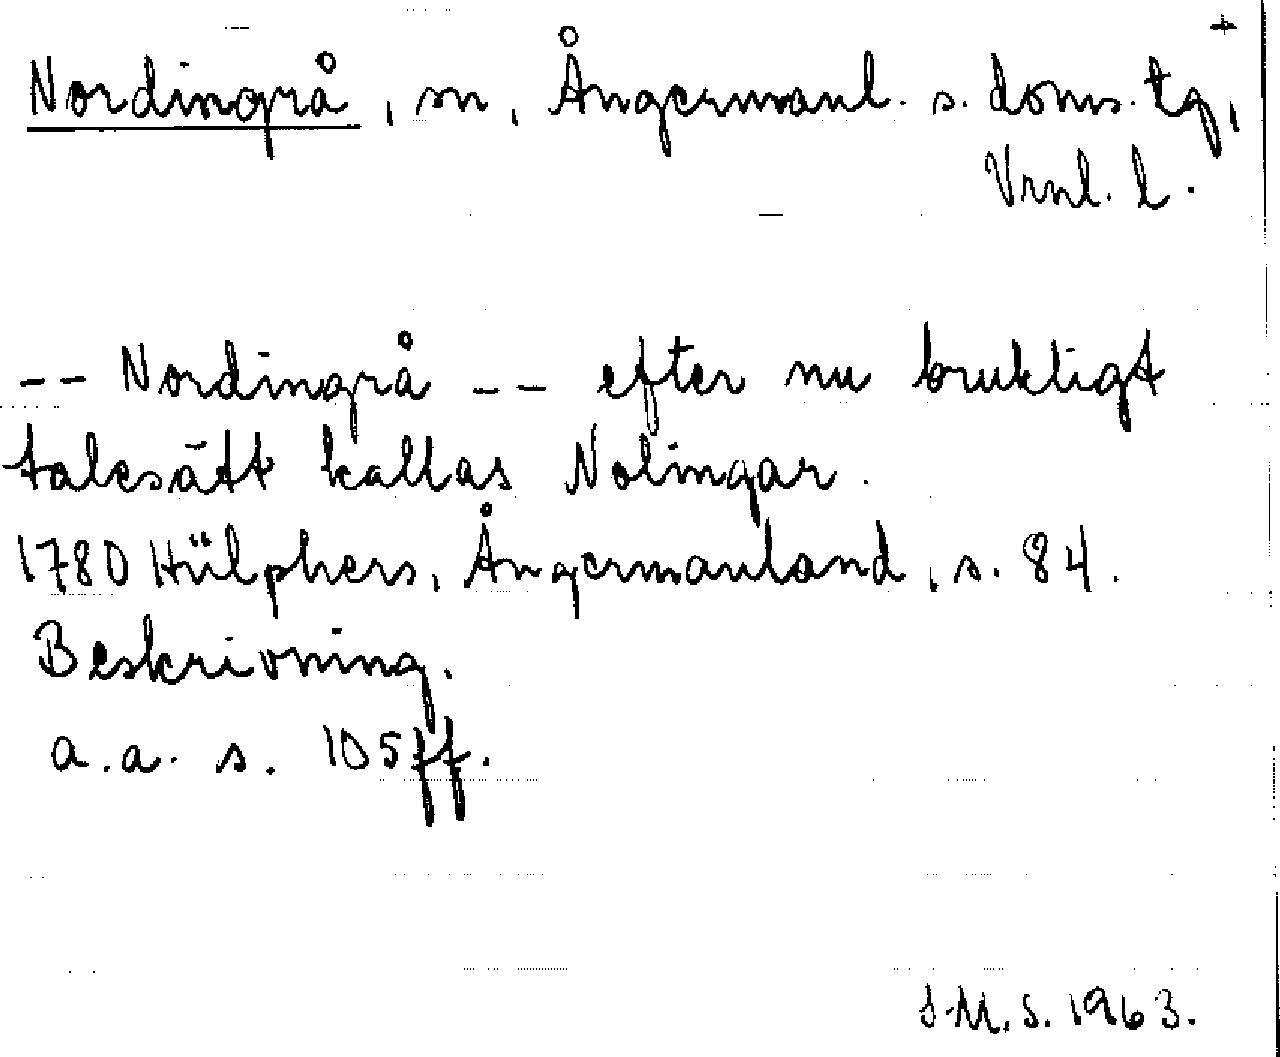 Nordingrå, sn, Ångermanl. s. doms. tg,
Vrnl. l.
-- Nordingrå -- efter nu brukligt
talesätt kallas Nolingar.
1780 Hülphers, Ångermanland, s. 84.
Beskrivning.
a.a. s. 105 ff.
S.M.S. 1963.